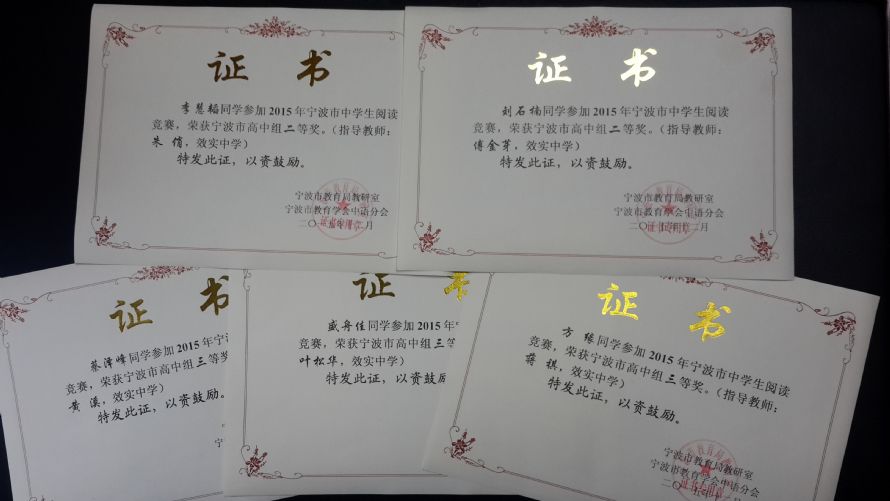 证 书
李慧韬同学参加 2015 年宁波市中学生阅读
竞赛，荣获宁波市高中组二等奖。（指导教师：
朱 俏，效实中学）
特发此证，以资鼓励。
宁波市教育局教研室
宁波市教育学会中语分会
二〇一五年十二月
证 书
刘石楠同学参加 2015 年宁波市中学生阅读
竞赛，荣获宁波市高中组二等奖。（指导教师：
傅金芽，效实中学）
特发此证，以资鼓励。
宁波市教育局教研室
宁波市教育学会中语分会
二〇一五年十二月
证 书
蔡泽峰同学参加 2015 年宁
竞赛，荣获宁波市高中组三等奖
黄 溪，效实中学）
特发此证，以资鼓励。
宁
证
盛舟佳同学参加 2015 年
竞赛，荣获宁波市高中组三等
叶松华，效实中学）
特发此证，以资鼓
证 书
方 缘同学参加 2015 年宁波市中学生阅读
竞赛，荣获宁波市高中组三等奖。（指导教师：
蒋 祺，效实中学）
特发此证，以资鼓励。
宁波市教育局教研室
宁波市教育学会中语分会